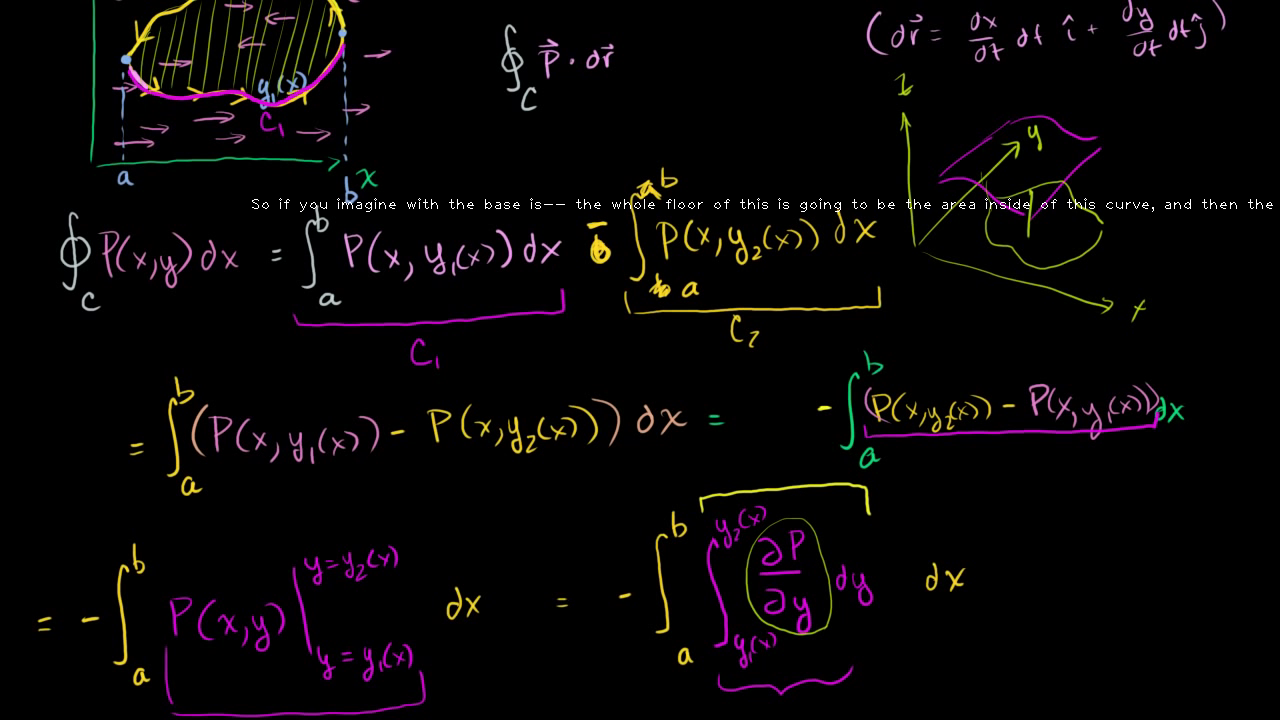 ∮_C P⃗ · dr⃗
(dr⃗ = dx/dt dt î + dy/dt dt ĵ)
y₁(x)
C₁
a b x
z y x
So if you imagine with the base is–– the whole floor of this is going to be the area inside of this curve, and then the
∮_C P(x,y) dx = ∫_a^b P(x, y₁(x)) dx - ∫_a^b P(x, y₂(x)) dx
C₁ C₂
= ∫_a^b (P(x, y₁(x)) - P(x, y₂(x))) dx = - ∫_a^b (P(x, y₂(x)) - P(x, y₁(x))) dx
= - ∫_a^b P(x,y) |_{y = y₁(x)}^{y = y₂(x)} dx = - ∫_a^b ∫_{y₁(x)}^{y₂(x)} ∂P/∂y dy dx